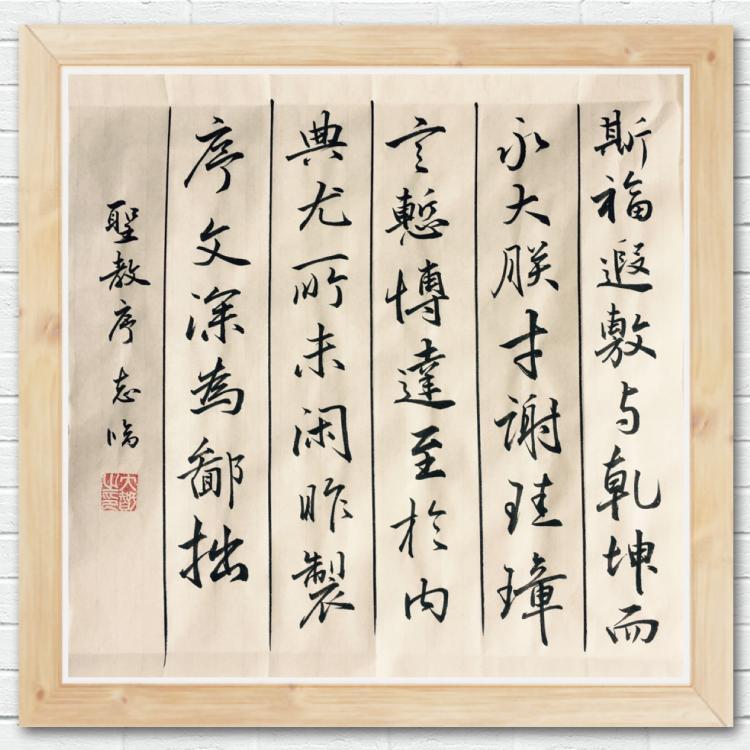 斯福遐敷与乾坤而
永大朕才謝珪璋
言慙博達至於内
典尤所未闲昨製
序文深為鄙拙
聖教序志临